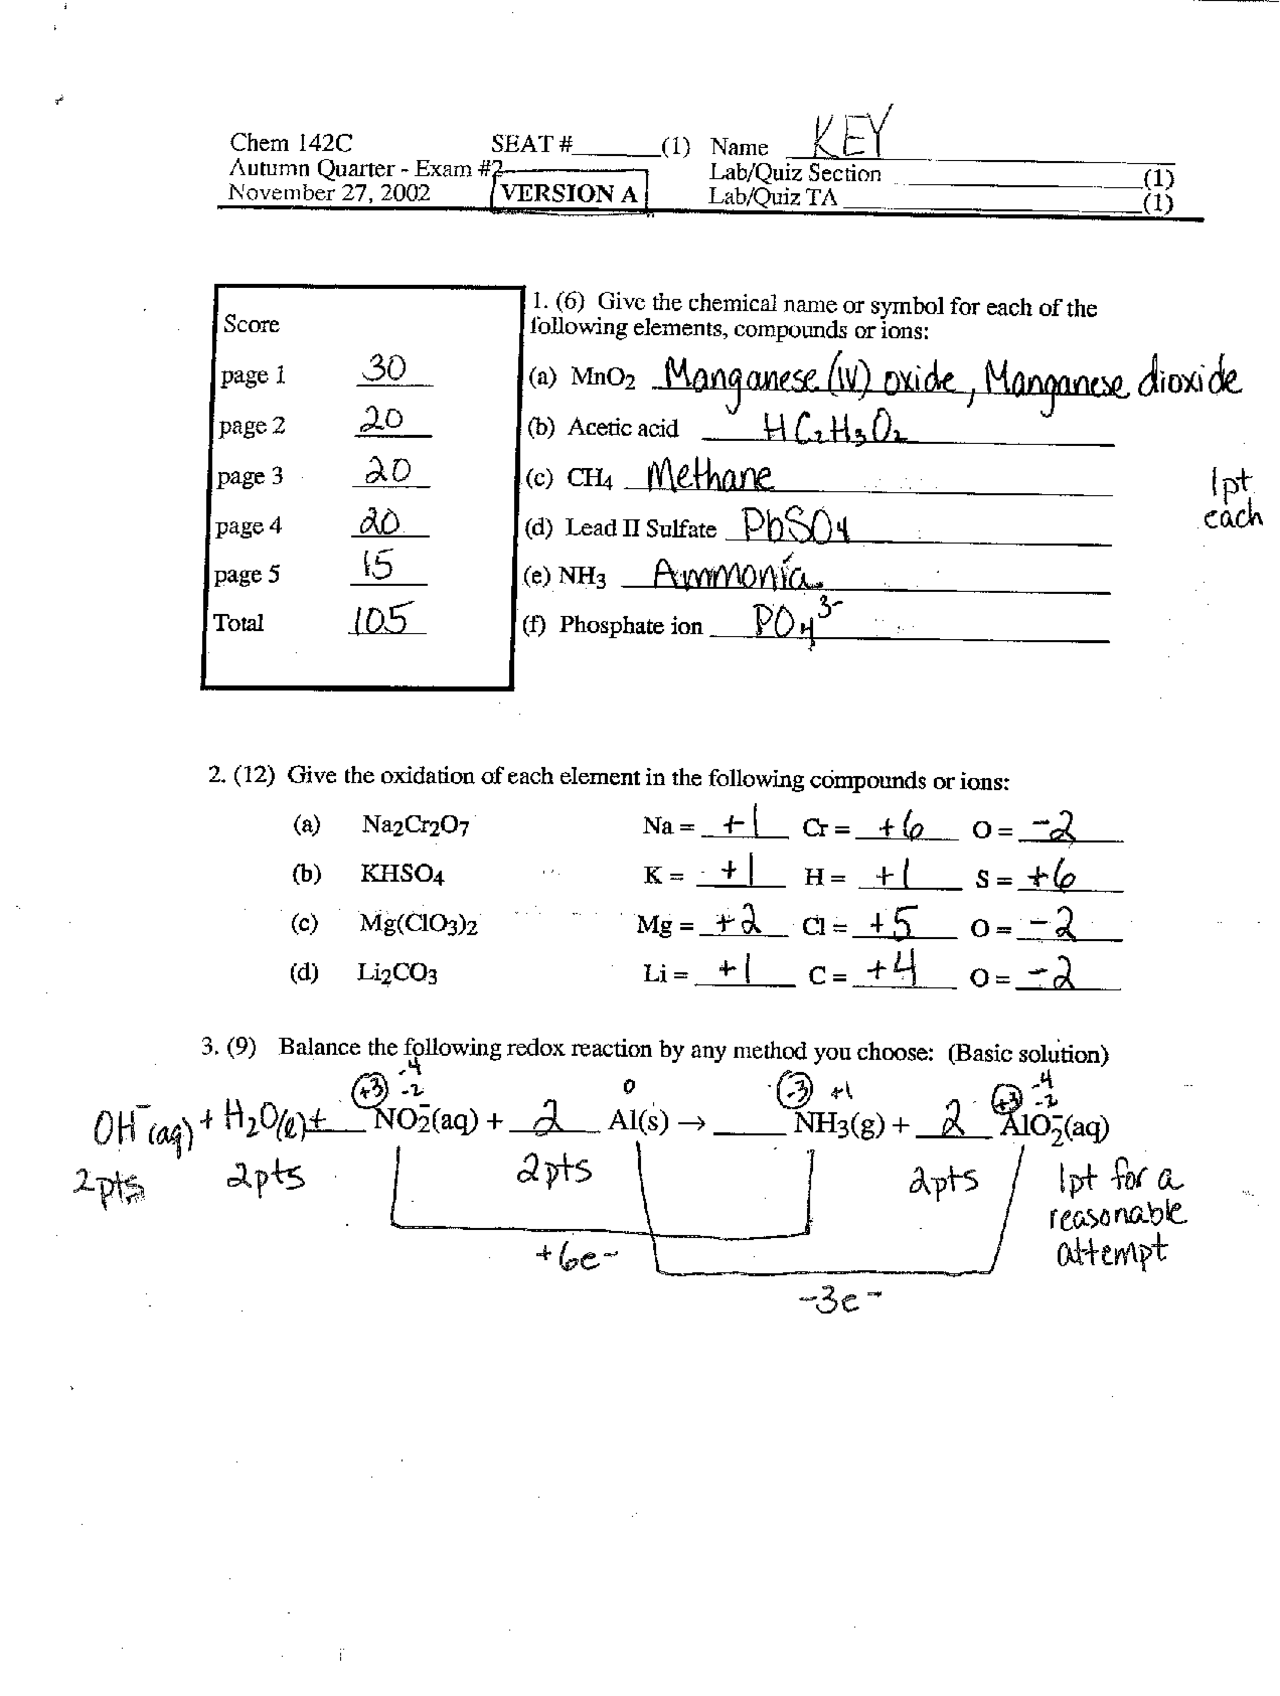 Chem 142C SEAT #______(1) Name KEY
Autumn Quarter - Exam #2 Lab/Quiz Section ______(1)
November 27, 2002 VERSION A Lab/Quiz TA ______(1)
Score
page 1 30
page 2 20
page 3 20
page 4 20
page 5 15
Total 105
1. (6) Give the chemical name or symbol for each of the
following elements, compounds or ions:
(a) MnO2 Manganese (IV) oxide, Manganese dioxide
(b) Acetic acid HC2H3O2
(c) CH4 Methane
(d) Lead II Sulfate PbSO4
(e) NH3 Ammonia
(f) Phosphate ion PO4 3-
1pt
each
2. (12) Give the oxidation of each element in the following compounds or ions:
(a) Na2Cr2O7 Na = +1 Cr = +6 O = -2
(b) KHSO4 K = +1 H = +1 S = +6
(c) Mg(ClO3)2 Mg = +2 Cl = +5 O = -2
(d) Li2CO3 Li = +1 C = +4 O = -2
3. (9) Balance the following redox reaction by any method you choose: (Basic solution)
-4 -4
+3 -2 0 -3 +1 +3 -2
OH-(aq) + H2O(l) + ___ NO2-(aq) + 2 Al(s) → ___ NH3(g) + 2 AlO2-(aq)
2pts 2pts 2pts 2pts 1pt for a
reasonable
attempt
+6e-
-3e-